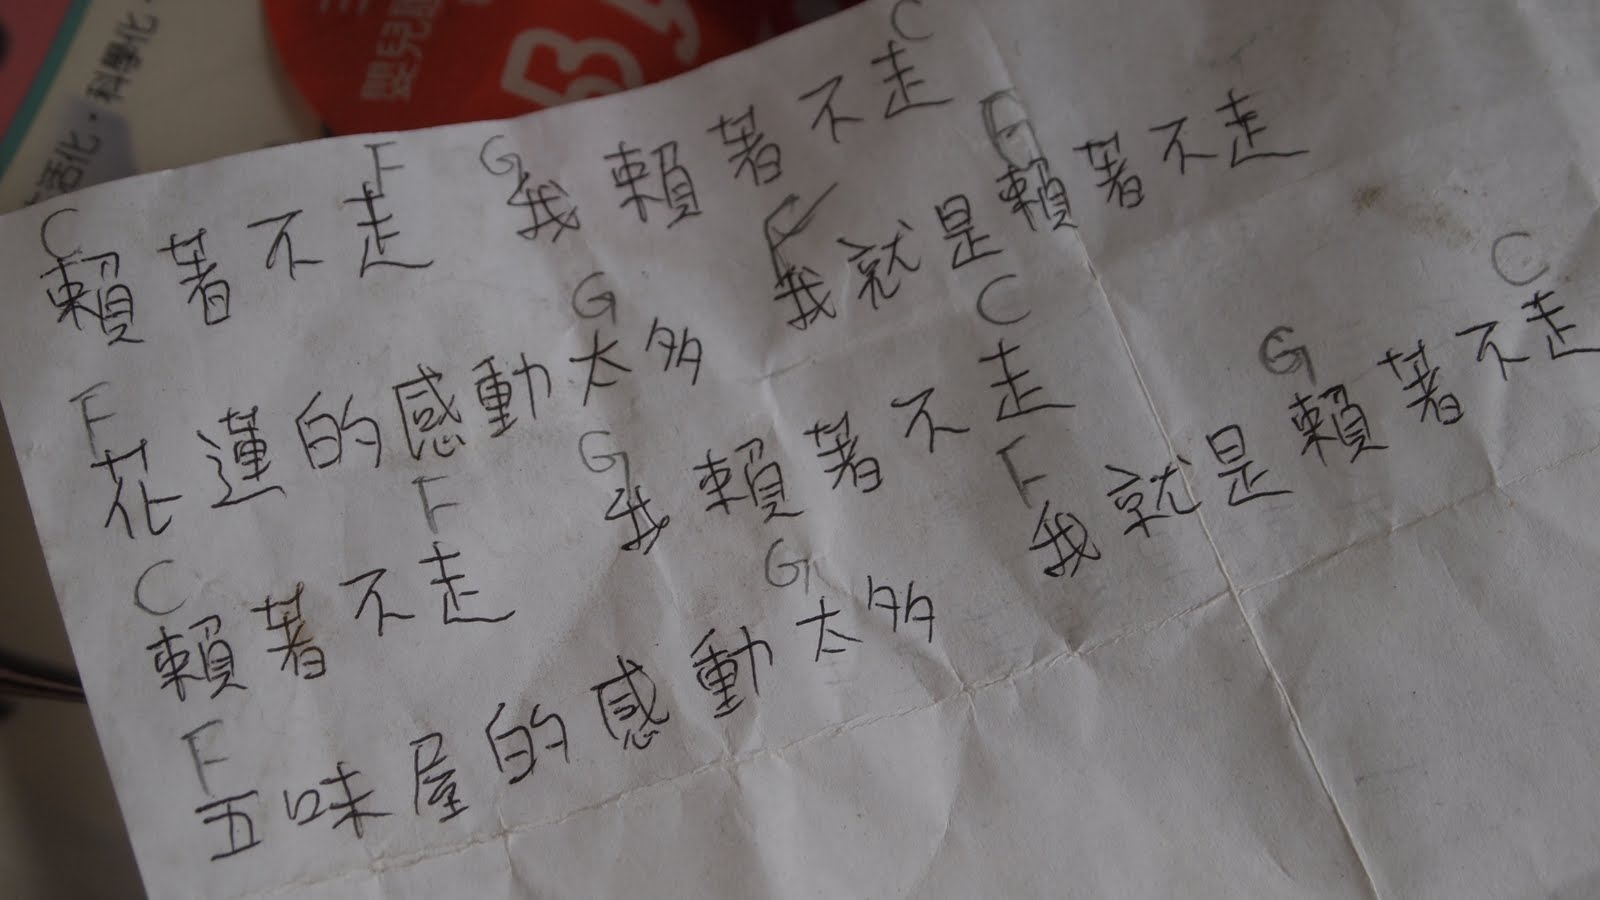 活化·科學化·
嬰兒
BA
C F G C
賴著不走 我賴著不走
F G F
花蓮的感動太多 我就是賴著不走
C F G C
賴著不走 我賴著不走
F G F G C
五味屋的感動太多 我就是賴著不走